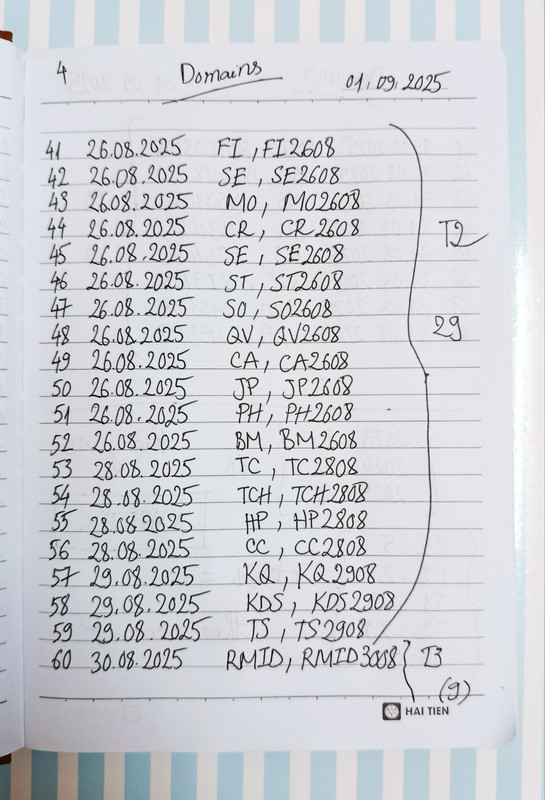 4 Domains 01.09.2025
41 26.08.2025 FI, FI2608
42 26.08.2025 SE, SE2608
43 26.08.2025 MO, MO2608
44 26.08.2025 CR, CR2608 T2
45 26.08.2025 SE, SE2608
46 26.08.2025 ST, ST2608
47 26.08.2025 SO, SO2608
48 26.08.2025 QV, QV2608 29
49 26.08.2025 CA, CA2608
50 26.08.2025 JP, JP2608
51 26.08.2025 PH, PH2608
52 26.08.2025 BM, BM2608
53 28.08.2025 TC, TC2808
54 28.08.2025 TCH, TCH2808
55 28.08.2025 HP, HP2808
56 28.08.2025 CC, CC2808
57 29.08.2025 KQ, KQ2908
58 29.08.2025 KDS, KDS2908
59 29.08.2025 TS, TS2908
60 30.08.2025 RMID, RMID3008 T3
(9)
HAI TIEN